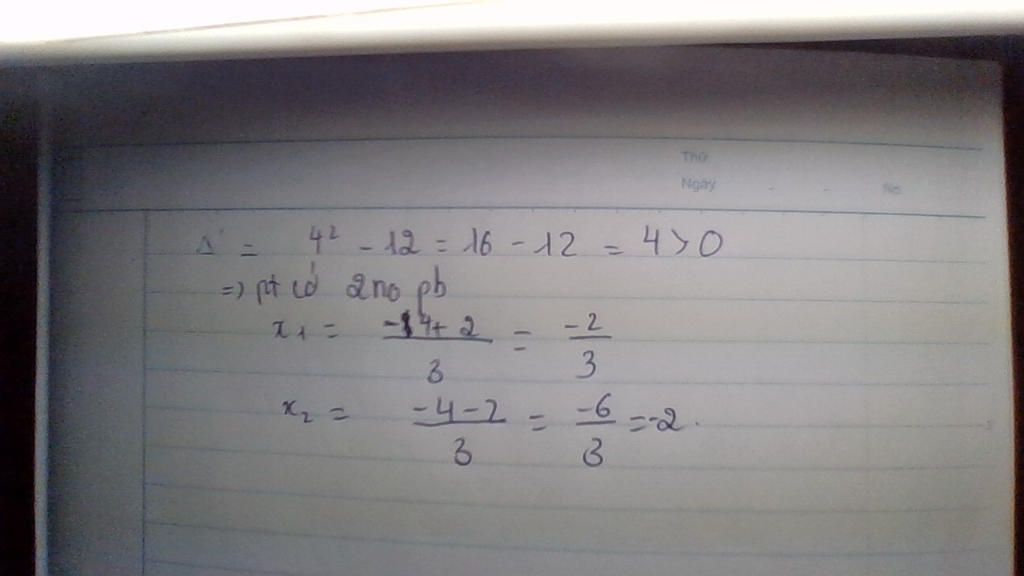 Thứ
Ngày - - No.
Δ' = 4² - 12 = 16 - 12 = 4 > 0
=> pt có 2 no pb
x₁ = (-4 + 2)/3 = -2/3
x₂ = (-4 - 2)/3 = -6/3 = -2.